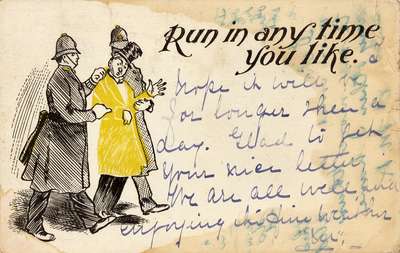 Run in any time
you like.
Hope it will be
for longer than a
day. Glad to get
your nice letter
We are all well and
enjoying this fine weather